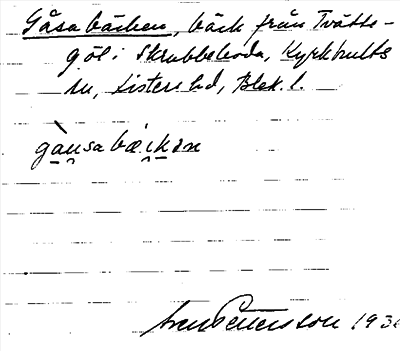 Gåsabäcken, bäck från Tvätte-
göl i Skrubbeboda, Kyrkhults
sn, Listers hd, Blek. l.
gàu̯sabæckən
Sven Petersson 193